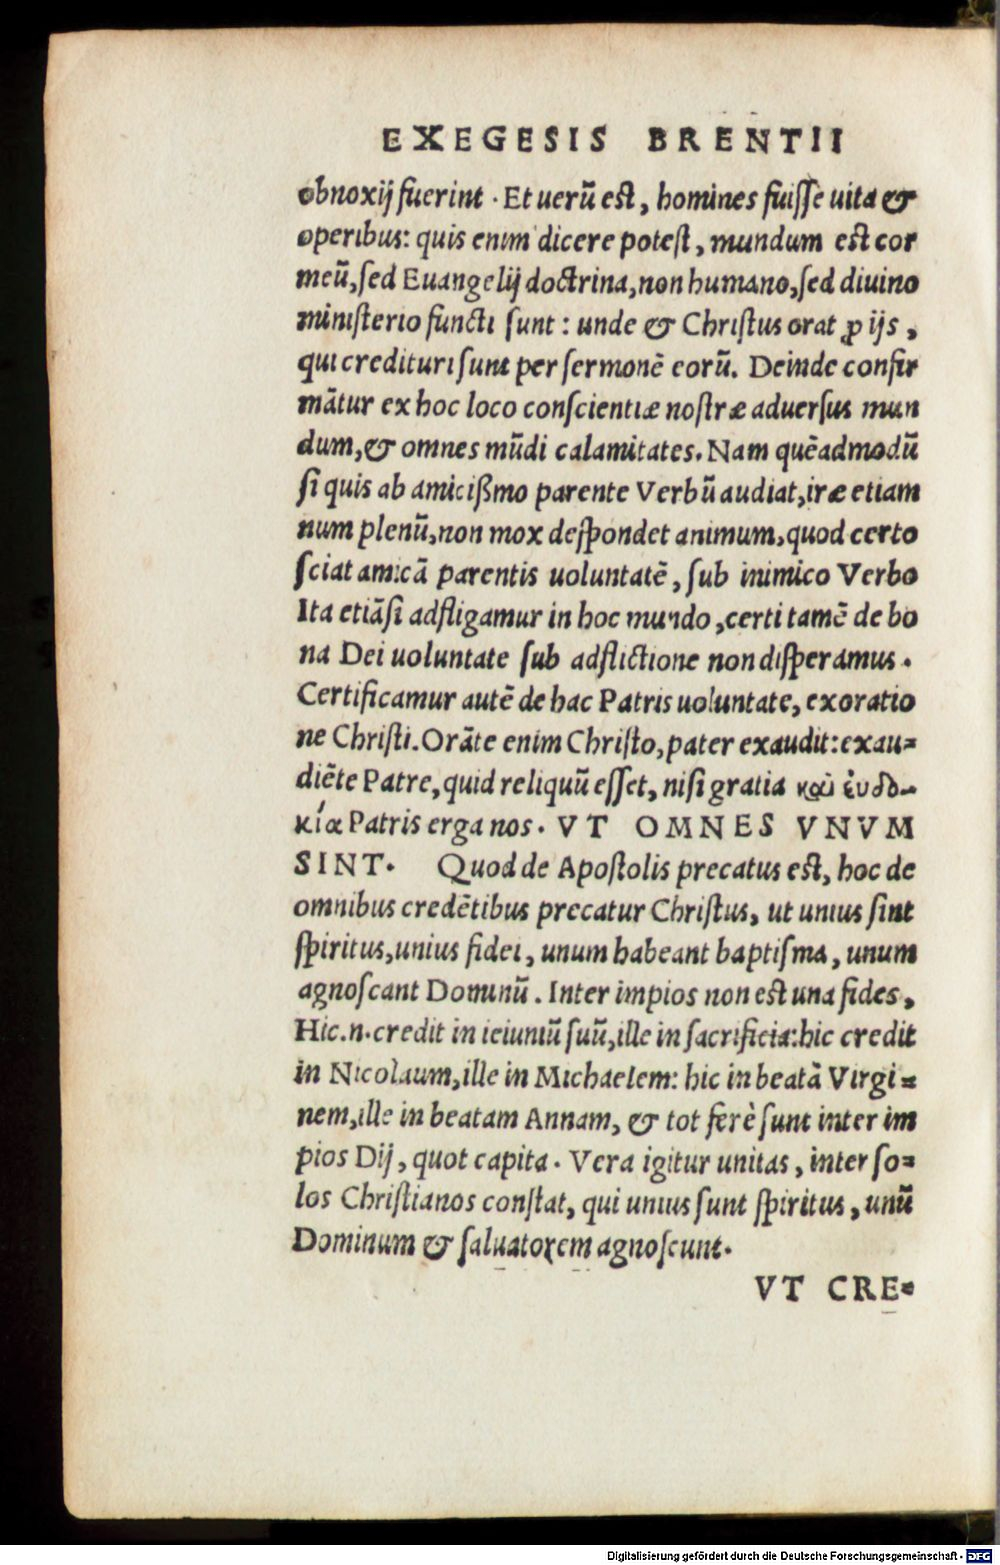 EXEGESIS BRENTII
obnoxij fuerint . Et uerũ est, homines fuisse uita &
operibus: quis enim dicere potest, mundum est cor
meũ, sed Euangelij doctrina, non humano, sed diuino
ministerio functi sunt : unde & Christus orat ꝓ ijs ,
qui credituri sunt per sermonẽ eorũ. Deinde confir
mãtur ex hoc loco conscientiæ nostræ aduersus mun
dum, & omnes mũdi calamitates. Nam quẽadmodũ
si quis ab amicißmo parente Verbũ audiat, iræ etiam
num plenũ, non mox despondet animum, quod certo
sciat amicã parentis uoluntatẽ, sub inimico Verbo
Ita etiãsi adfligamur in hoc mundo, certi tamẽ de bo
na Dei uoluntate sub adflictione non disperamus .
Certificamur autẽ de hac Patris uoluntate, exoratio
ne Christi. Orãte enim Christo, pater exaudit: exau=
diẽte Patre, quid reliquũ esset, nisi gratia καὶ ἐυδο-
κία Patris erga nos . VT OMNES VNVM
SINT. Quod de Apostolis precatus est, hoc de
omnibus credẽtibus precatur Christus, ut unius sint
spiritus, unius fidei, unum habeant baptisma, unum
agnoscant Dominũ . Inter impios non est una fides,
Hic .n. credit in ieiuniũ suũ, ille in sacrificia: hic credit
in Nicolaum, ille in Michaelem: hic in beatã Virgi=
nem, ille in beatam Annam, & tot ferè sunt inter im
pios Dij, quot capita . Vera igitur unitas, inter so=
los Christianos constat, qui unius sunt spiritus, unũ
Dominum & saluatorem agnoscunt.
VT CRE=
Digitalisierung gefördert durch die Deutsche Forschungsgemeinschaft - DFG